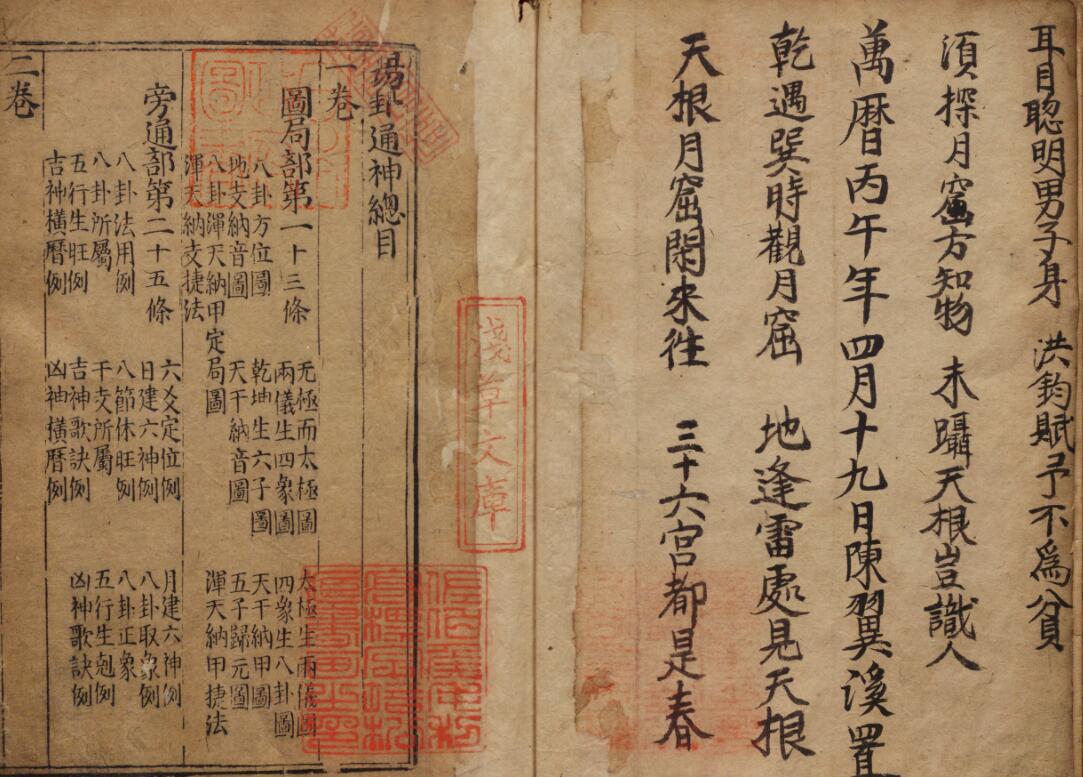 耳目聰明男子身 洪鈞賦予不為貧
須探月窟方知物 未躡天根豈識人
萬曆丙午年四月十九日陳翼溪置
乾遇巽時觀月窟 地逢雷處見天根
天根月窟閑來往 三十六宮都是春
淺草文庫
卦通神總目
一卷
圖局部第一十三條
无極而太極圖 太極生兩儀圖
八卦方位圖 兩儀生四象圖 四象生八卦圖
乾坤生六子圖 天干納甲圖
地支納音圖 天干納音圖 五子歸元圖
八卦渾天納甲定局圖 渾天納甲捷法
渾天納支捷法
旁通部第二十五條
六爻定位例 月建六神例
八卦法用例 日建六神例 八卦取象例
八卦所屬 八節休旺例 八卦正象
五行生旺例 干支所屬 五行生剋例
吉神橫曆例 吉神歌訣例 凶神歌訣例
凶神橫曆例
二卷